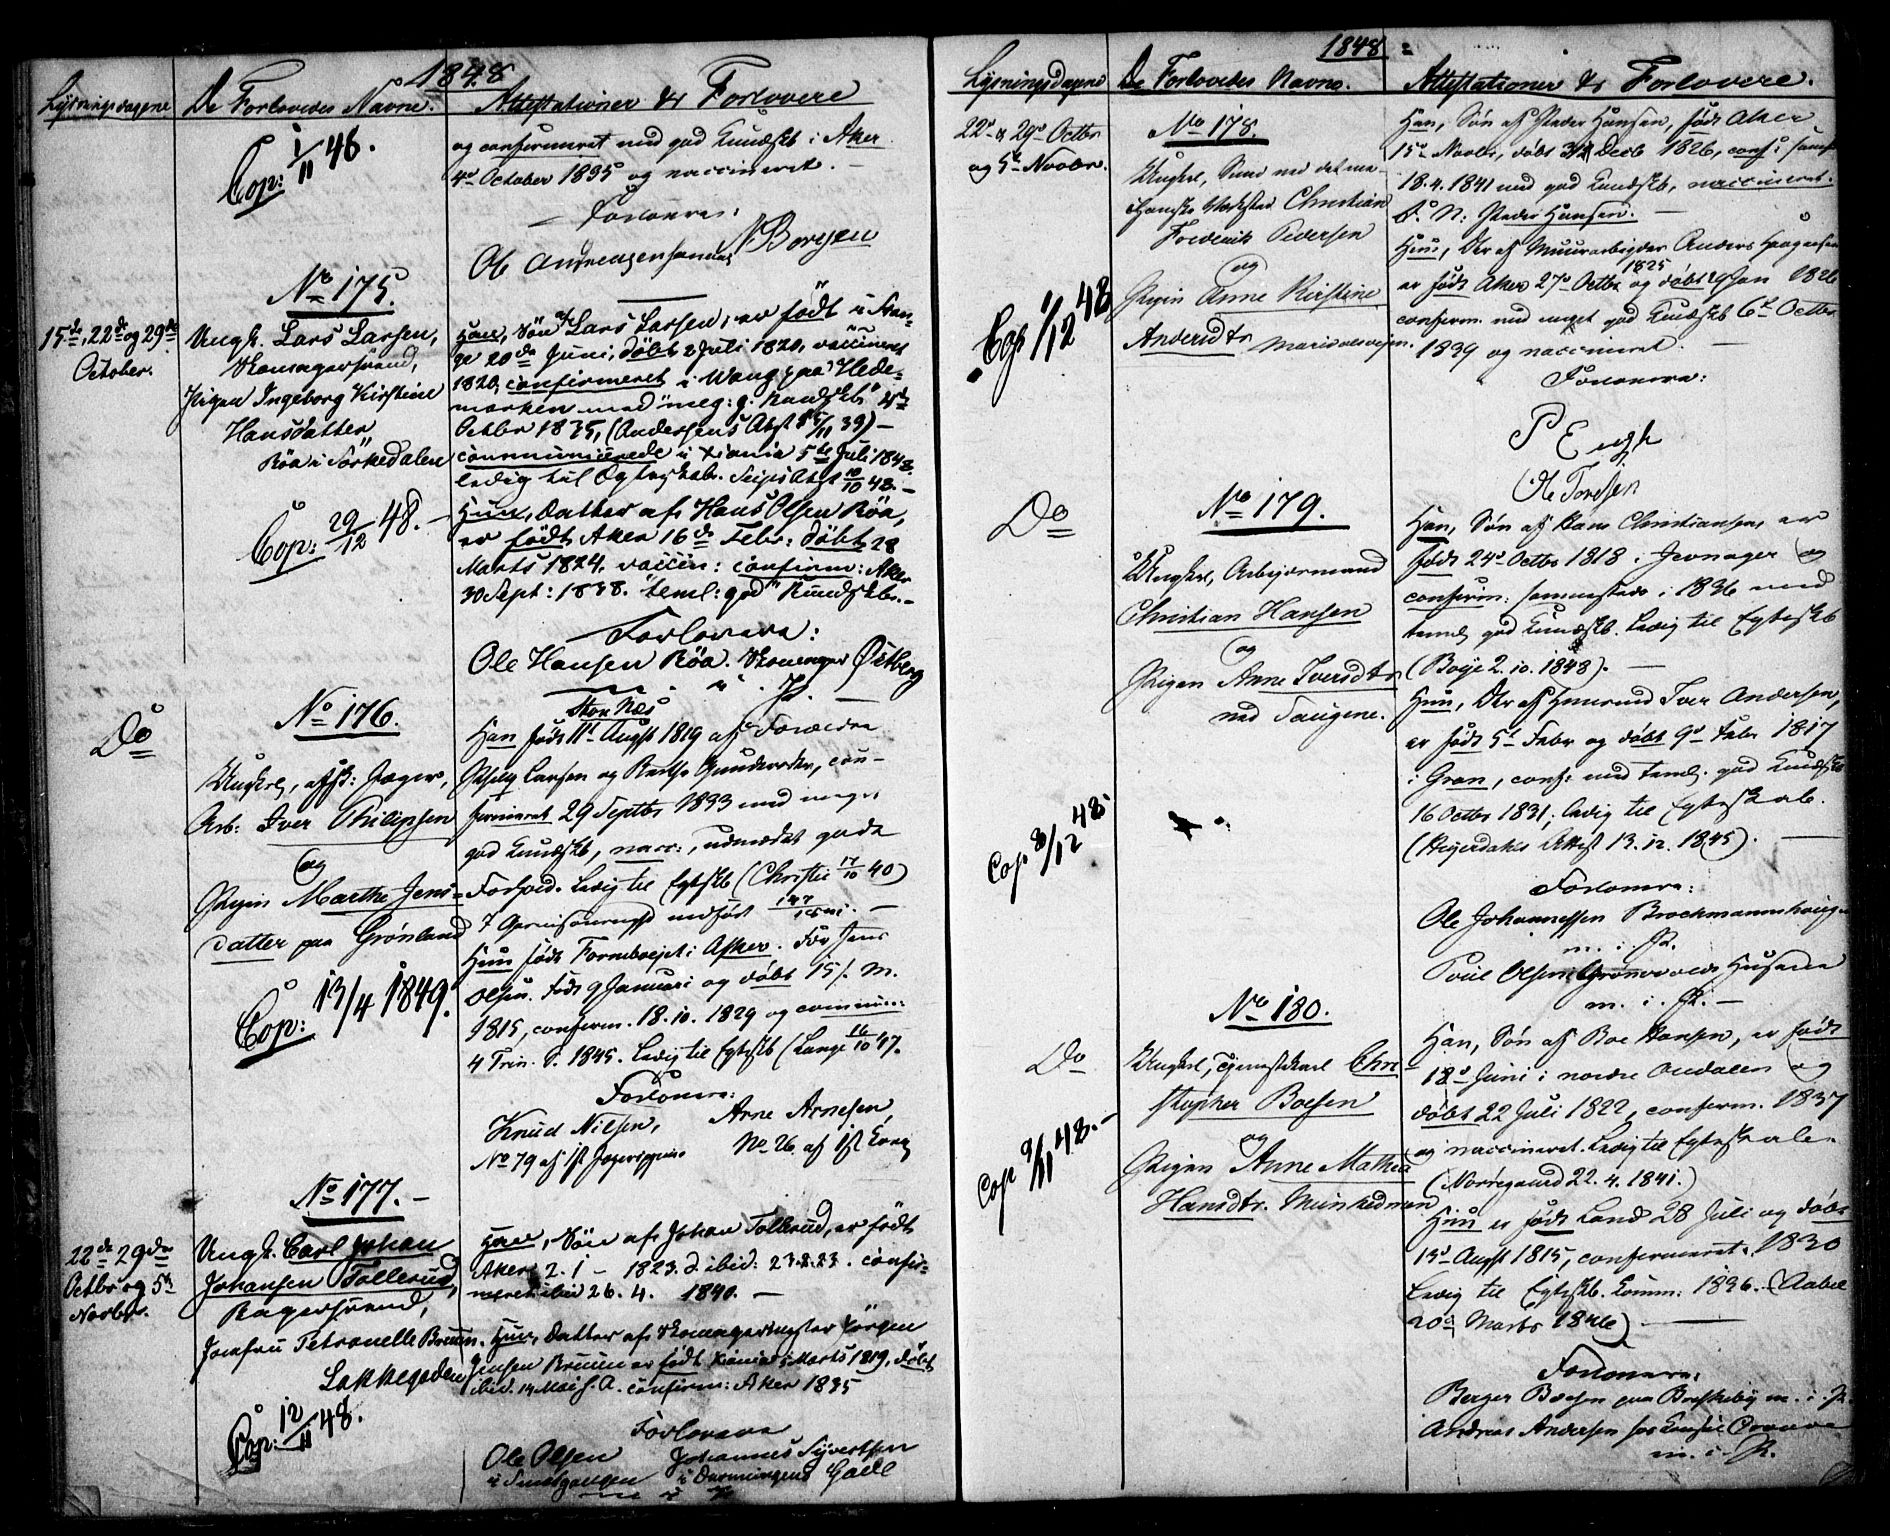 1848
Lysningsdagene De Forlovedes Navne. Attestationer & Forlovere
Cop: 1/11 48.
og confirmeret med god Kundsk. i Aker
4de October 1835 og vaccineret.
Forlovere:
Ole Andreasen N Borgen
No 175.
15de, 22de og 29de
October.
Ungk. Lars Larsen,
Skomagersvend,
Pigen Ingeborg Kirstine
Hansdatter
Röa i Sörkedalen
Cop: 29/12 48.
Han, Sön af Lars Larsen, er födt i Stan-
ge 20de Juni, döbt 2 Juli 1820, vaccineret
1820, confirmeret i Wang paa Hede-
marken med "meg: g. Kundskb" 4de
Octbr 1835, (Andersens Atst 15/11 39) –
communicerede i Xiania 5te Juli 1848
ledig til Ægteskab. Atst 10/10 48. –
Hun, Datter af Hans Olsen Röa,
er födt Aker 16de Febr: döbt 28
Marts 1824, vaccin: confirm: Aker
30 Sept: 1838. "teml: god" Kundskb. –
Forlovere:
Ole Hansen Röa. Skomager Østberg
No 176.
Do
Ungkrl, afsk: Jæger,
Arb: Iver Philipsen
og
Pigen Marthe Jens-
datter paa Grönland
Cop: 13/4 1849.
Stor Næs
Han födt 11 Augst 1819 af Forældre
Philip Larsen og Berthe Gundersdtr, con-
firmeret 29 Septbr 1833 med meget
god Kundskb, vacc:, udmærket gode
Forhold. Ledig til Egtskb (Christie 17/10 40)
Hun födt i Asker. For Jens
Olsen. Födt 9 Januari og döbt 15/. M.
1815, confirm. 18.10. 1829 og commun:
4 Trin. S. 1845. Ledig til Egtskb (Lange 16/10 47.
Forlovere:
Knud Nilsen, Arne Arnesen,
No 79 af No 26 af
No 177. –
22de 29de
Octbr og 5te
Novbr.
Ungk. Carl Johan
Johansen Tollerud,
Bagersvend,
Jomfru Petronelle Bruun.
Løkkegaden
Cop: 12/11 48.
Han, Sön af Johan Tollerud, er födt
Aker 2. 1 – 1823. d ibid: 23.2.23. confir-
meret ibid 26. 4. 1840. –
Hun, Datter af Skomagermester Jörgen
Jensen Bruun er födt Xiania 5 Marts 1819, döbt
ibid. 14 Mai s. A. confirm: Aker 1835
Forlovere
Ole Olsen Johannes Syvertsen
1848
Lysningsdagene De Forlovedes Navne. Attestationer & Forlovere.
22de & 29de Octbr
og 5te Novbr.
No 178.
Ungkrl, Smed ved det me-
chaniske Værksted Christian
Frederik Pedersen
og
Pigen Anne Kirstine
Andersdtr
Cop 1/12 48
Han, Sön af Peder Hansen, födt Aker
15de Novbr, döbt Decb 1826, conf i samme
18. 4. 1841 med god Kundskb, vaccineret.
F. N: Peder Hansen. –
Hun, Dtr af Muurarbejder Anders Haagensen
er födt Aker 27de Octbr 1825 og döbt 29 Jan 1826
confirm. med meget god Kundskb 6te Octbr
1839 og vaccineret. –
Forlovere:
P Engh
Ole Toresen
No 179.
Do
Ungkrl, Arbejdsmand
Christian Hansen
og
Pigen Anne Iversdtr
ved Saugene.
Cop 8/12 48.
Han, Sön af Hans Christiansen, er
födt 24de Octbr 1818 i Jevnager og
confirm: sammesteds i 1836 med
temlg god Kundskb. Ledig til Egteskb
(Boije 2. 10. 1848). –
Hun, Dtr af Huusmand Iver Andersen,
er födt 5te Febr og döbt 9de Febr 1817
i Gran, conf: med temlg. god Kundskb
16 Octbr 1831, ledig til Egteskab.
(Hejerdahls Attest 13. 12. 1845). –
Forlovere:
Ole Johannessen
m. i. P.
Poul Olsen
m. i. P. –
No 180.
Do
Ungkrl, Tjenestekarl Chri
stopher Boesen
og
Pigen Anne Mathea
Hansdtr. Munkedveien
Cop 9/11 48. –
Han, Sön af Boe Hansen, er födt
18de Juni i nordre Ourdalen og
döbt 22 Juli 1822, confirm. 1837
og vaccineret. Ledig til Egteskab.
(Norregaard 22. 4. 1841.)
Hun er födt Land 28 Juli og döbt
13de Augst 1815, confirmeret 1830
Ledig til Egteskb. Comm: 1836. (Aabel
20de Marts 1846) –
Forlovere,
Berger Boesen paa m. i. P.
Andreas Andersen hos Consul
m. i. P.